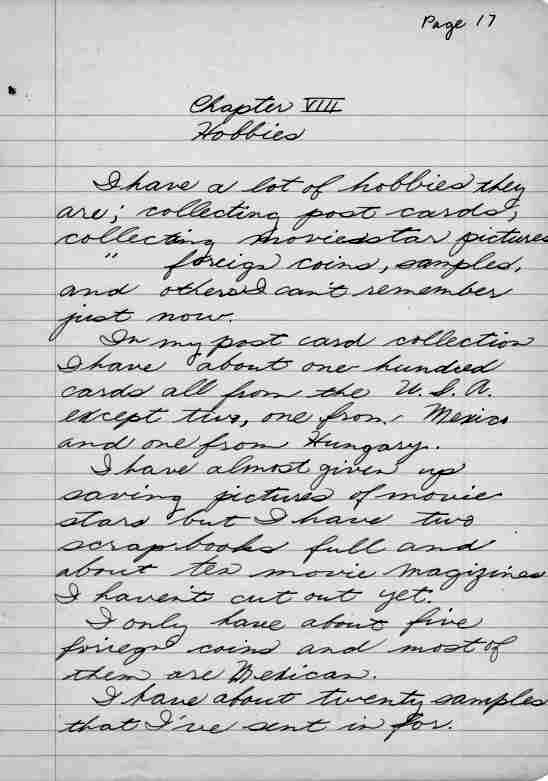 Page 17
Chapter VIII
Hobbies
I have a lot of hobbies they
are; collecting post cards,
collecting moviestar pictures
" foreign coins, samples,
and others I can't remember
just now.
In my post card collection
I have about one hundred
cards all from the U. S. A.
except two, one from Mexico
and one from Hungary.
I have almost given up
saving pictures of movie
stars but I have two
scrapbooks full and
about ten movie magizines
I haven't cut out yet.
I only have about five
foriegn coins and most of
them are Mexican.
I have about twenty samples
that I've sent in for.